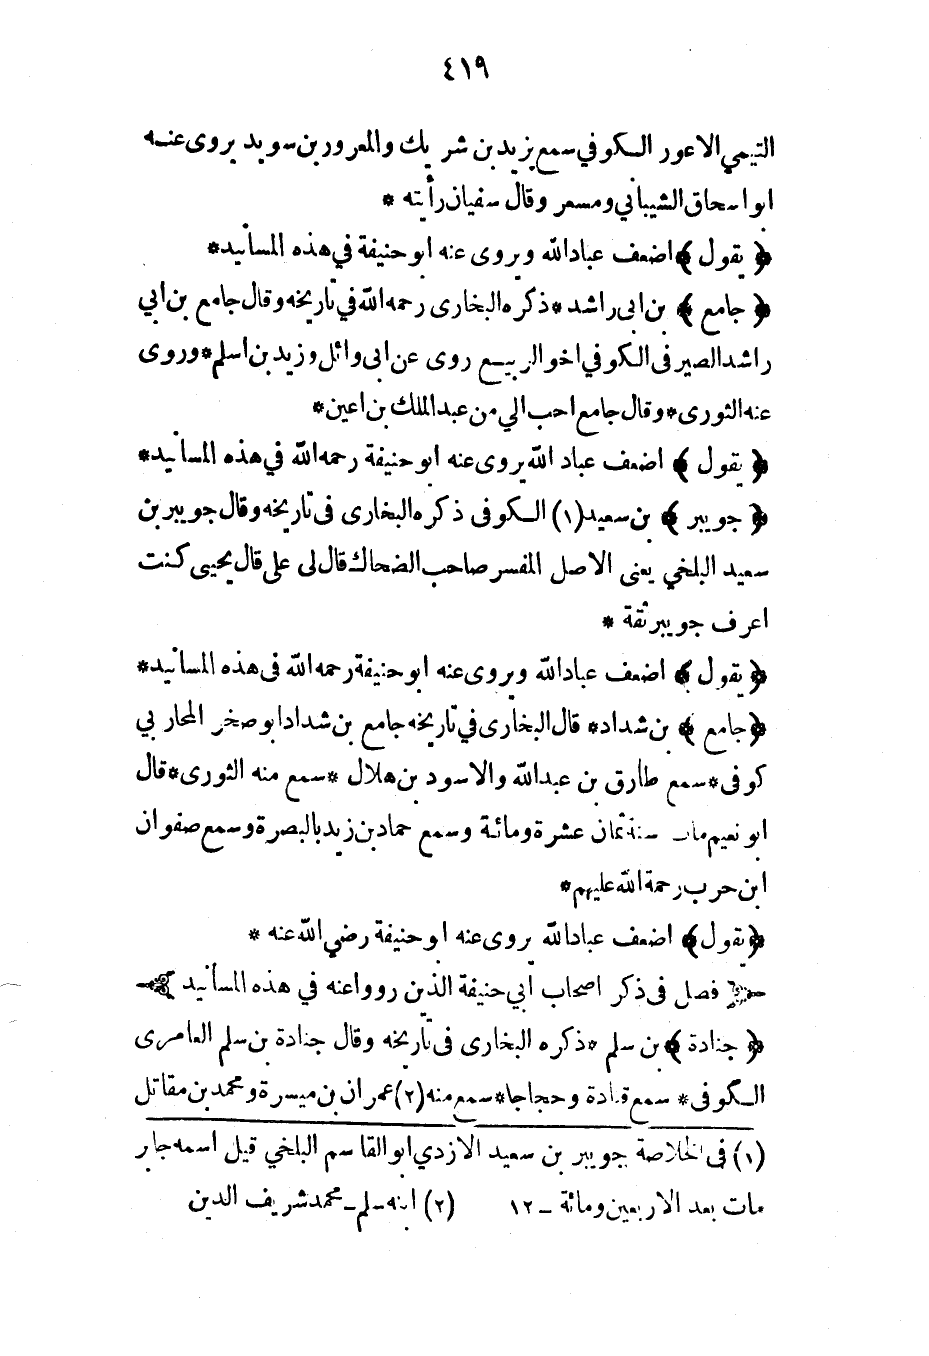 ٤١٩
التيمي الاعور الكوفي سمع يزيد بن شريك والمعرور بن سويد يروى عنه
ابو اسحاق الشيباني ومسعر وقال سفيان رأيته *
﴿ يقول ﴾ اضعف عباد الله ويروى عنه ابو حنيفة في هذه المسانيد *
﴿ جامع ﴾ بن ابى راشد * ذكره البخارى رحمه الله في تاريخه وقال جامع بن ابي
راشد الصيرفى الكوفي اخو الربيع روى عن ابى وائل وزيد بن اسلم * وروى
عنه الثورى * وقال جامع احب الي من عبد الملك بن اعين *
﴿ يقول ﴾ اضعف عباد الله يروى عنه ابو حنيفة رحمه الله في هذه المسانيد *
﴿ جويبر ﴾ بن سعيد (١) الكوفى ذكره البخارى فى تاريخه وقال جويبر بن
سعيد البلخي يعنى الاصل المفسر صاحب الضحاك قال لى على قال يحيى كنت
اعرف جويبر ثقة *
﴿ يقول ﴾ اضعف عباد الله ويروى عنه ابو حنيفة رحمه الله فى هذه المسانيد *
﴿ جامع ﴾ بن شداد * قال البخارى في تاريخه جامع بن شداد ابو صخر المحاربي
كوفى * سمع طارق بن عبد الله والاسود بن هلال * سمع منه الثورى * قال
ابو نعيم مات سنة ثمان عشرة ومائة وسمع حماد بن زيد بالبصرة وسمع صفوان
ابن حرب رحمة الله عليهم *
﴿ يقول ﴾ اضعف عباد الله يروى عنه ابو حنيفة رضي الله عنه *
فصل فى ذكر اصحاب أبي حنيفة الذين رووا عنه في هذه المسانيد
﴿ جنادة ﴾ بن سلم * ذكره البخارى فى تاريخه وقال جنادة بن سلم العامرى
الكوفى * سمع قتادة وحجاجا * سمع منه (٢) عمران بن ميسرة ومحمد بن مقاتل
(١) فى الخلاصة جويبر بن سعيد الازدي ابو القاسم البلخي قيل اسمه جابر
مات بعد الاربعين ومائة - ١٢ (٢) ابنه سلم - محمد شريف الدين